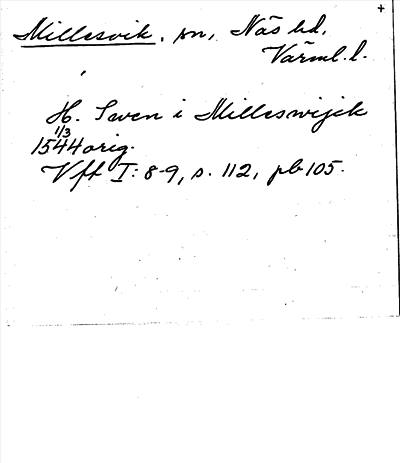 +
Millesvik, sn, Näs hd,
Värml. l.
H. Swen i Milleswijck
1/3
1544 orig.
Vft I: 8-9, s. 112, pb 105.